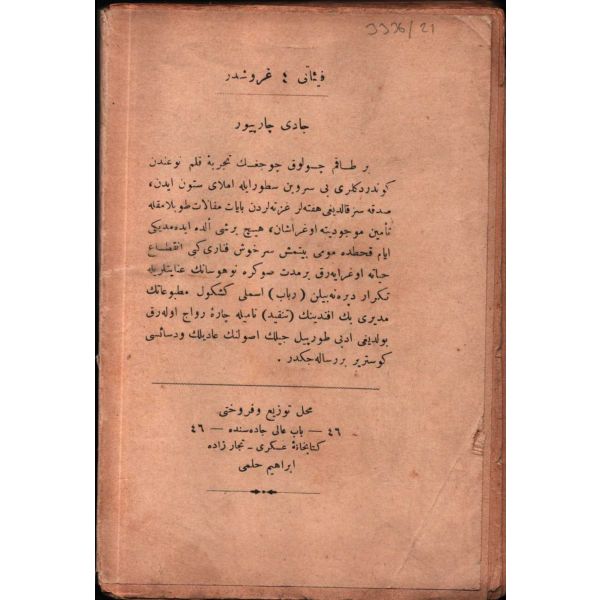 3336/21
فيئاتى ٤ غروشدر
جادى چارپيور
بر طاقم چولوق چوجغك تجربهٔ قلم نوعندن
كوندردكلرى بى سروبن سطورايله املاى ستون ايدن،
صدقه سز قالديغى هفته لر غزته لردن بايات مقالات طوپلامقله
تأمين موجوديته اوغراشان، هيچ برشى الده ايده مديكى
ايام قحطده مومى بيتمش سرخوش فنارى كبى انقطاع
حياته اوغرايه رق برمدت صوكره نوهوسانك عنايتلريله
تكرار ديره نه بيلن (رباب) اسملى كشكول مطبوعاتك
مديرى بك افندينك (تنقيد) ناميله چارهٔ رواج اوله رق
بولديغى ادبى طورپيل جيلك اصولنك عاديلك ودسائسى
كوسترير بررساله جكدر .
محل توزيع وفروختى
٤٦ — باب عالى جاده سنده — ٤٦
كتابخانهٔ عسكرى - تجار زاده
ابراهيم حلمى